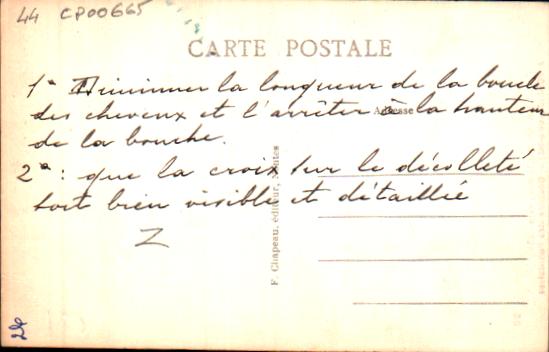 44 CP00665
CARTE POSTALE
1° Diminuer la longueur de la boucle
des cheveux et l'arrêter à la hauteur
Adresse
de la bouche.
2°: que la croix sur le décolleté
soit bien visible et détaillée
Z
F. Chapeau, éditeur, Nantes